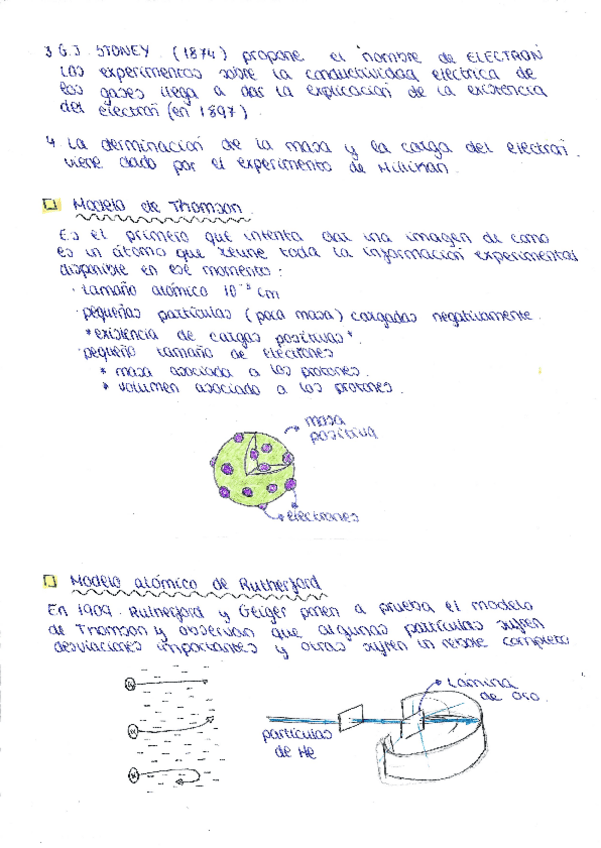 3 G.J. STONEY (1874) propone el nombre de ELECTRÓN
Los experimentos sobre la conductividad eléctrica de
los gases llega a dar la explicación de la existencia
del electrón (en 1897).
4 La derminación de la masa y la carga del electrón
viene dado por el experimento de Millikan.
Modelo de Thomson.
Es el primero que intenta dar una imagen de como
es un átomo que reune toda la información experimental
disponible en ese momento:
· tamaño atómico 10 cm
· pequeñas partículas (para masa) cargadas negativamente.
* existencia de cargas positivas *.
· pequeño tamaño de electrones
* masa asociada a los protones.
* volumen asociado a los protones.
masa
positiva
electrones
Modelo atómico de Rutherford
En 1909. Rutherford y Geiger ponen a prueba el modelo
de Thomson y observan que algunas partículas sufren
desviaciones importantes y otras sufren un rebote completo
Lámina
de oro.
partículas
de He